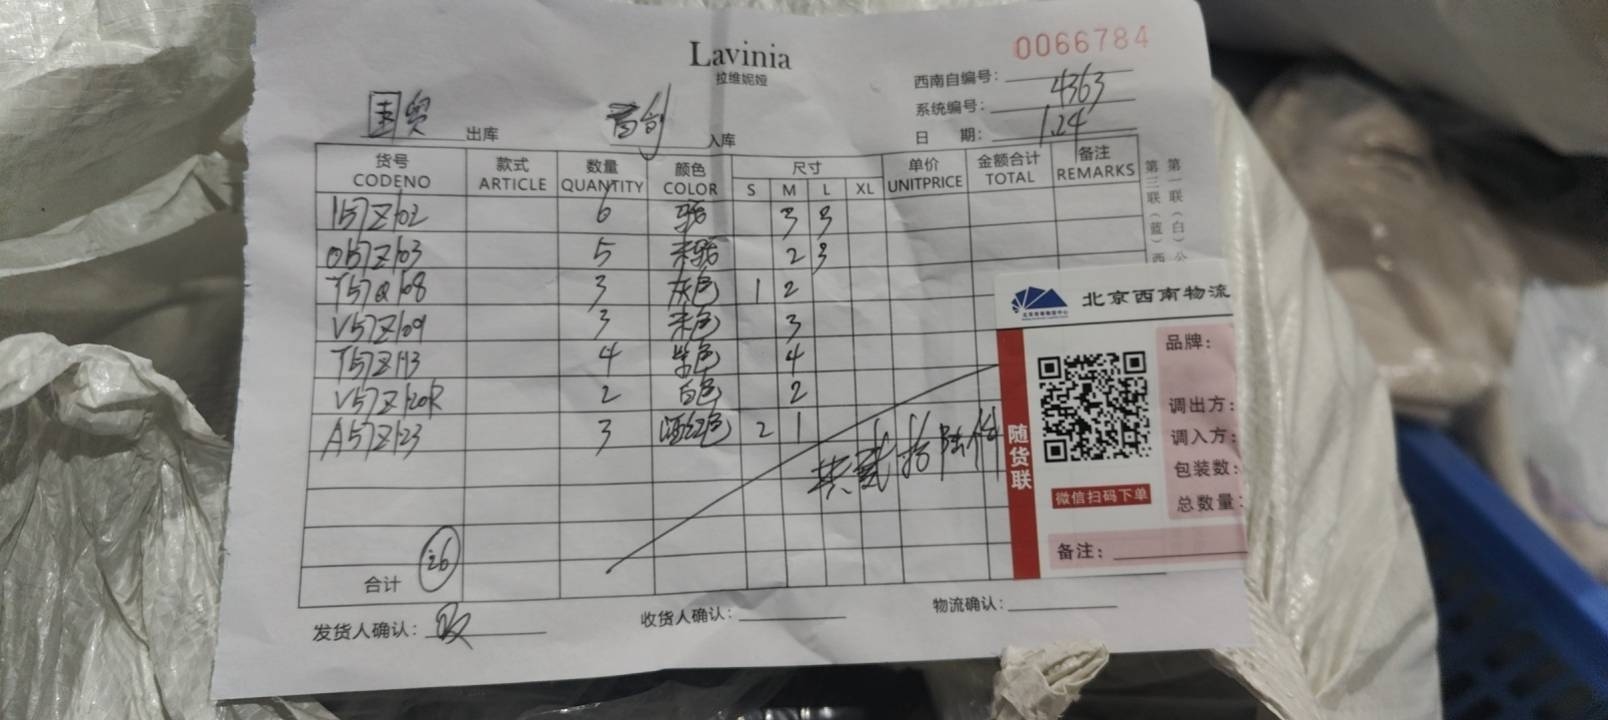 Lavinia
拉维妮娅
0066784
西南自编号:
系统编号: 4363
日 期: 1.24
国贸 出库 首创 入库
货号 款式 数量 颜色 尺寸 单价 金额合计 备注
CODENO ARTICLE QUANTITY COLOR S M L XL UNITPRICE TOTAL REMARKS
157Z102 6 驼 3 3
057Z103 5 米驼 2 3
T57Q108 3 灰色 1 2
V57Z109 3 米色 3
T57Z113 4 紫色 4
V57Z120R 2 白色 2
A57Z123 3 酒红色 2 1
共贰拾陆件
合计 26
发货人确认: 收货人确认: 物流确认:
第一联(白)公
第三联(蓝)西
北京西南物流
北京西南物流中心
品牌:
调出方:
调入方:
包装数:
总数量:
随货联
微信扫码下单
备注: